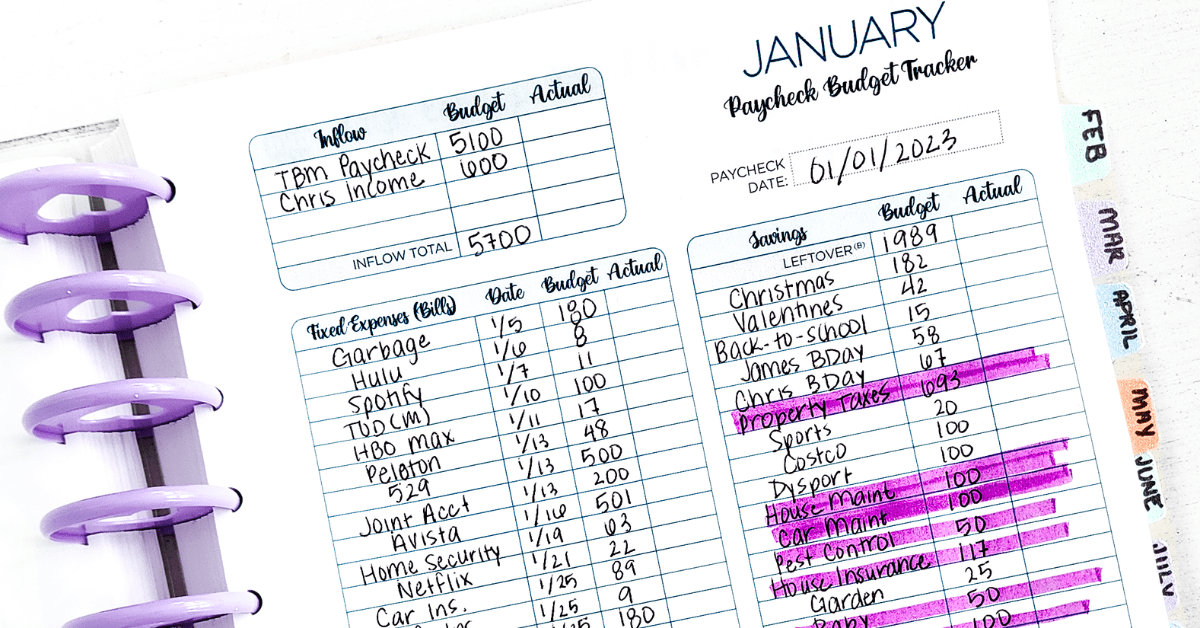 JANUARY
Paycheck Budget Tracker
PAYCHECK DATE: 01/01/2023
Inflow Budget Actual
TBM Paycheck 5100
Chris Income 600
INFLOW TOTAL 5700
Fixed Expenses (Bills) Date Budget Actual
Garbage 1/5 180
Hulu 1/6 8
Spotify 1/7 11
TUD (M) 1/10 100
HBO max 1/11 17
Peloton 1/13 48
529 1/13 500
Joint Acct 1/13 200
Avista 1/16 501
Home Security 1/19 63
Netflix 1/21 22
Car Ins. 1/25 89
1/25 9
180
Savings Budget Actual
LEFTOVER (B) 1989
Christmas 182
Valentines 42
Back-to-school 15
James BDay 58
Chris BDay 67
Property Taxes 693
Sports 20
Costco 100
Dysport 100
House Maint 100
Car Maint 100
Pest Control 50
House Insurance 117
Garden 25
Baby 50
100
FEB
MAR
APRIL
MAY
JUNE
JULY